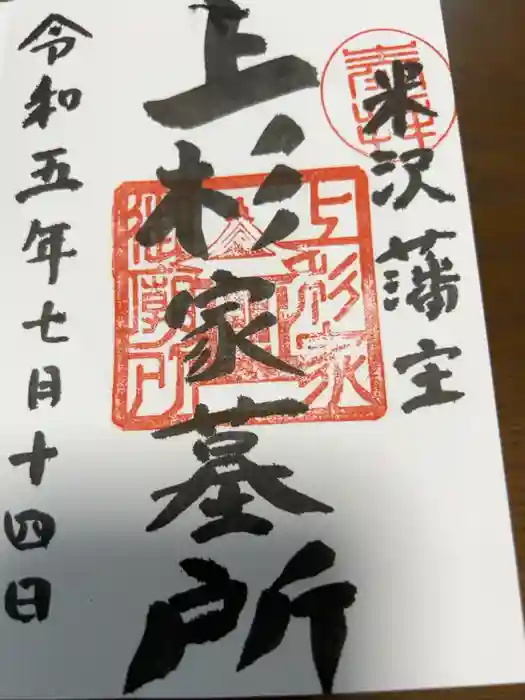 奉拝
米沢藩主
上杉家墓所
上杉家
御廟所
令和五年七月十四日